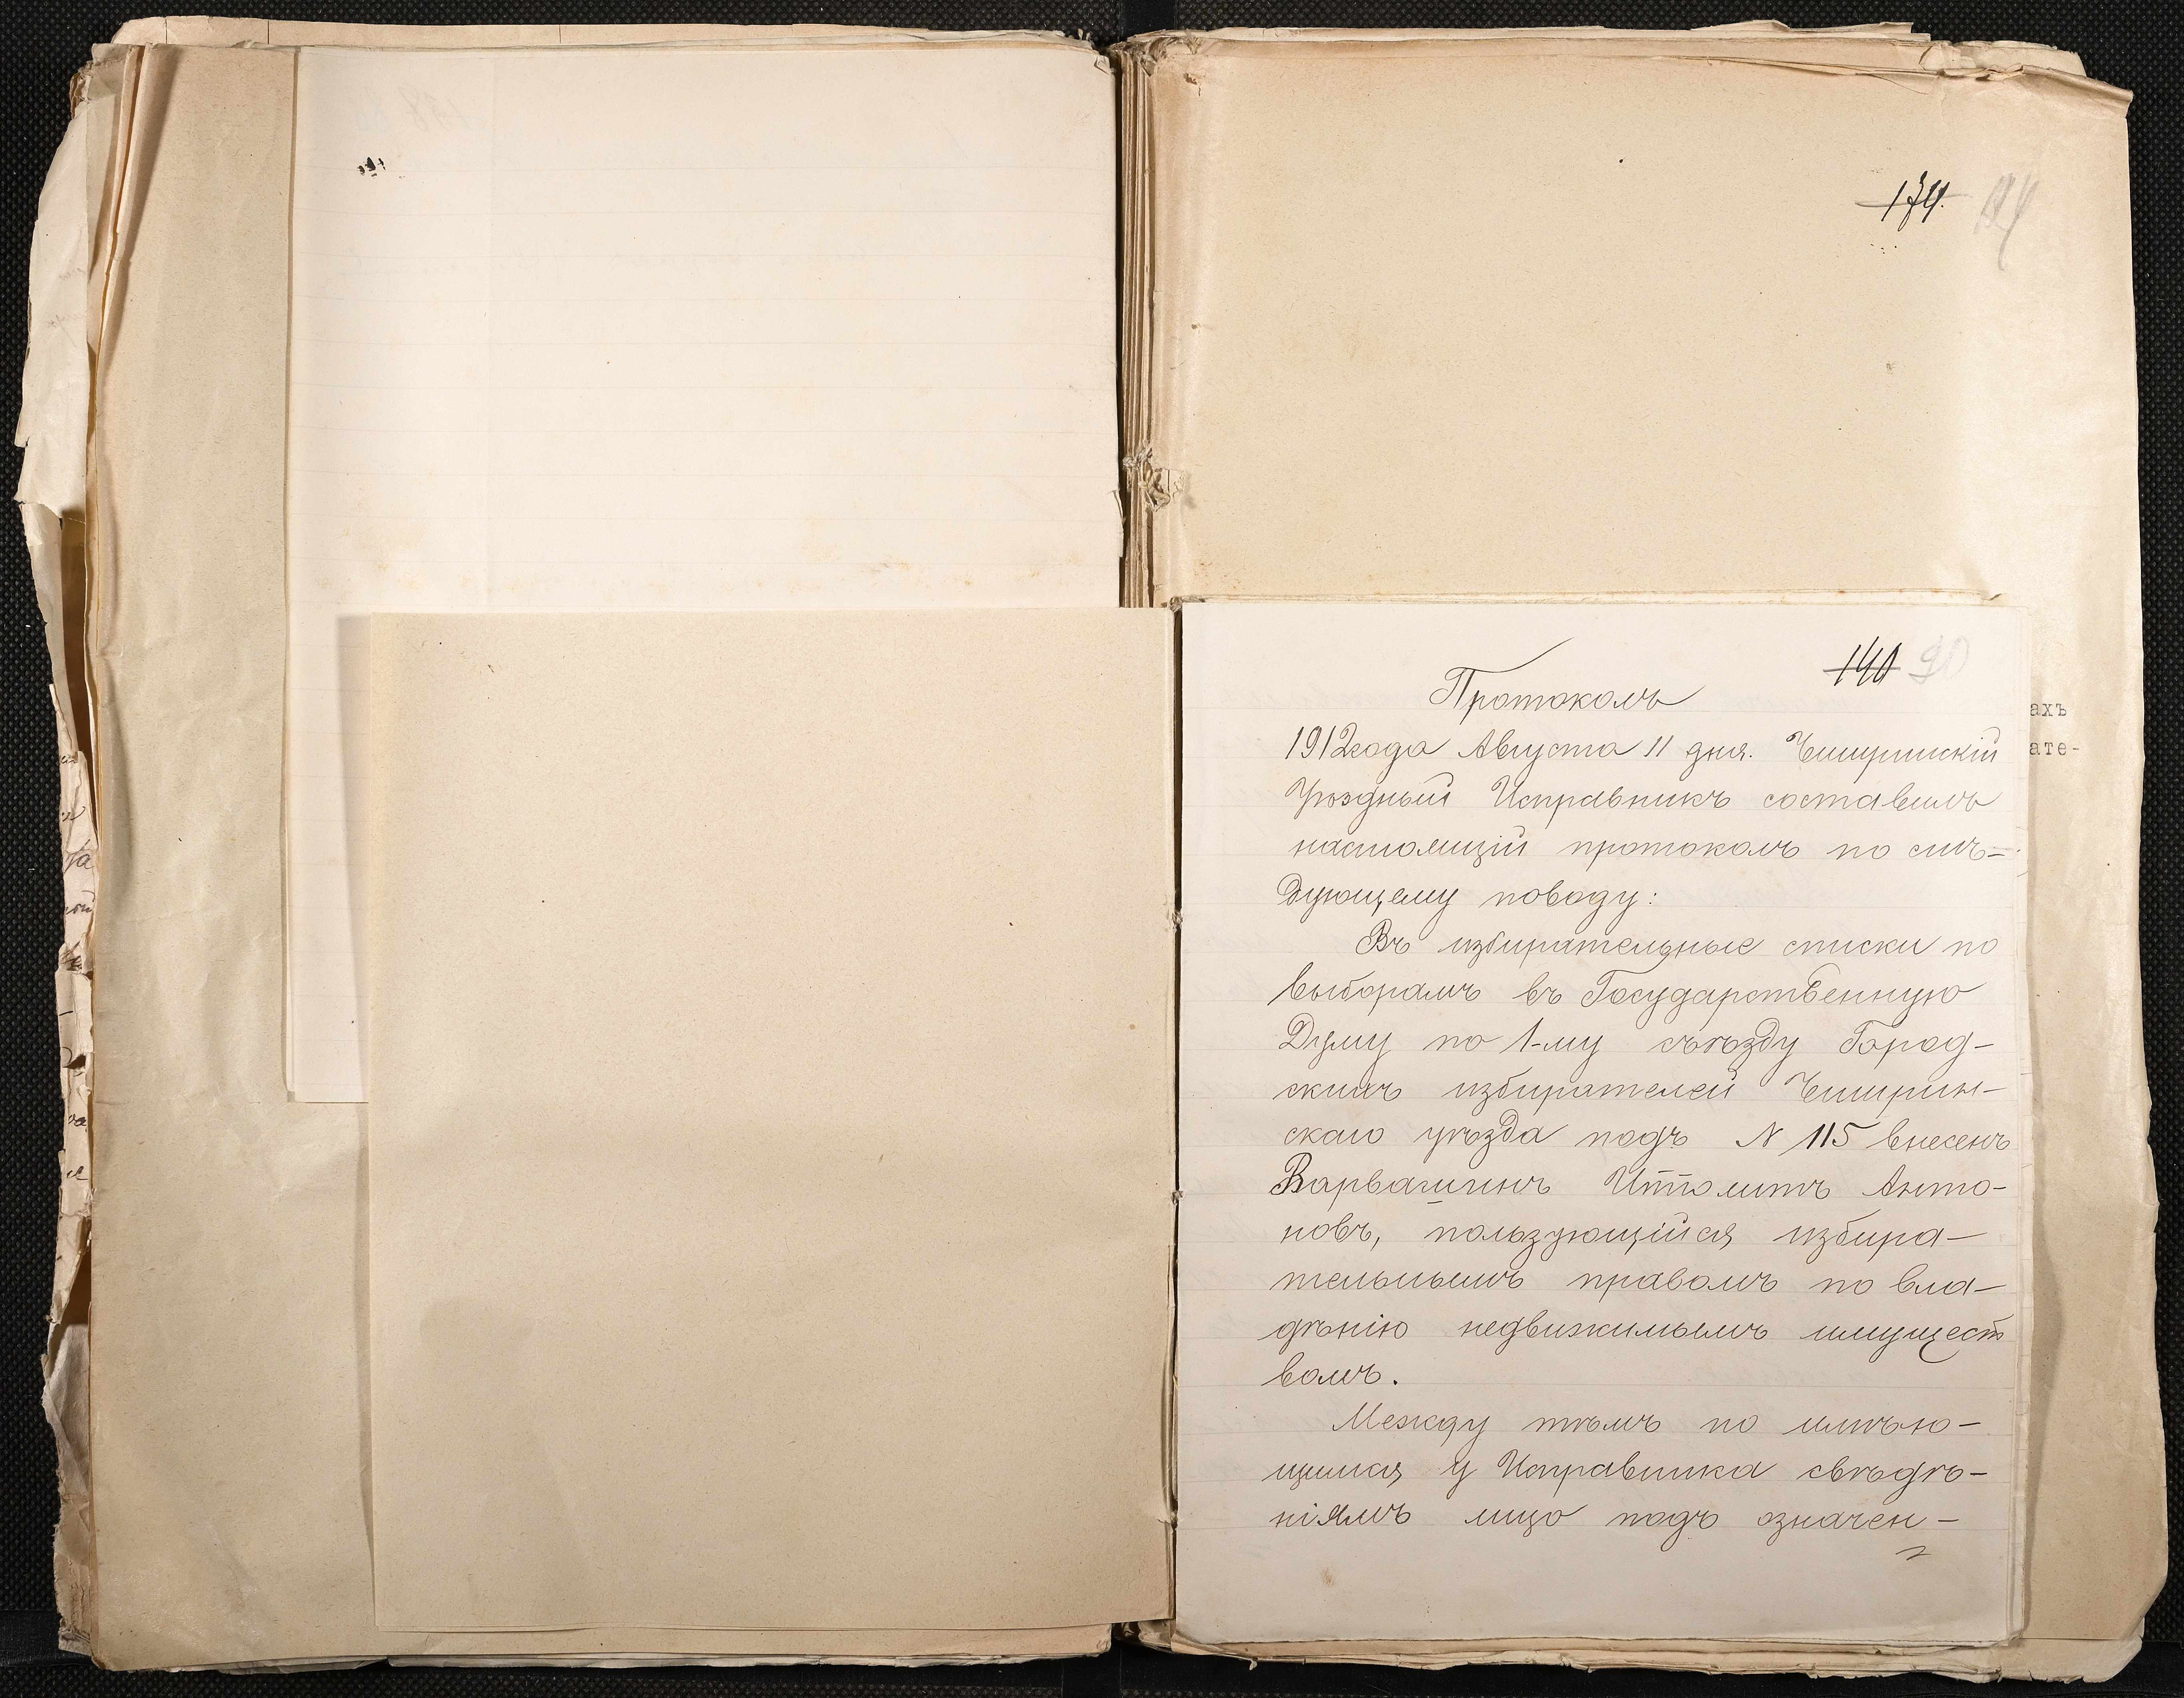 174.
140 90
Протоколъ
1912 года Августа 11 дня. Чигиринскій
Уѣздный Исправникъ составилъ
настоящій протоколъ по слѣ-
дующему поводу:
Въ избирательные списки по
выборамъ въ Государственную
Думу по 1-му съѣзду Город-
скихъ избирателей Чигирин-
скаго уѣзда подъ № 115 внесенъ
Ипполитъ Анто-
новъ, пользующійся избира-
тельнымъ правомъ по вла-
дѣнію недвижимымъ имущест
вомъ.
Между тѣмъ по имѣю-
щимся у Исправника свѣдѣ-
ніямъ лицо подъ означен-
ахъ
ате-